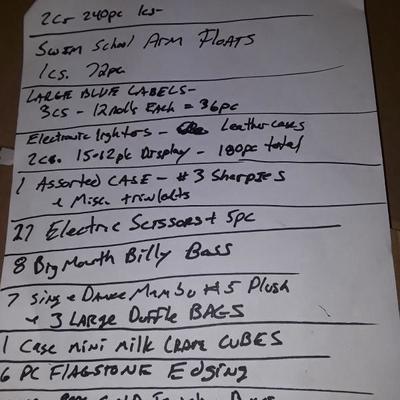 2cs 240pc 1cs-
Swim School Arm Floats
1cs. 72pc
Large Blue Labels-
3cs - 12 rolls Each = 36pc
Electronic lighters - Leather cases
2cs. 15-12pk Display - 180pc total
1 Assorted CASE - #3 Sharpies
+ Misc.
27 Electric Scissors + 5pc
8 Big Mouth Billy Bass
7 Sing + Dance Mambo #5 Plush
+ 3 LARGE Duffle BAGS
1 Case mini Milk CRATE CUBES
6 PC FLAGSTONE Edging